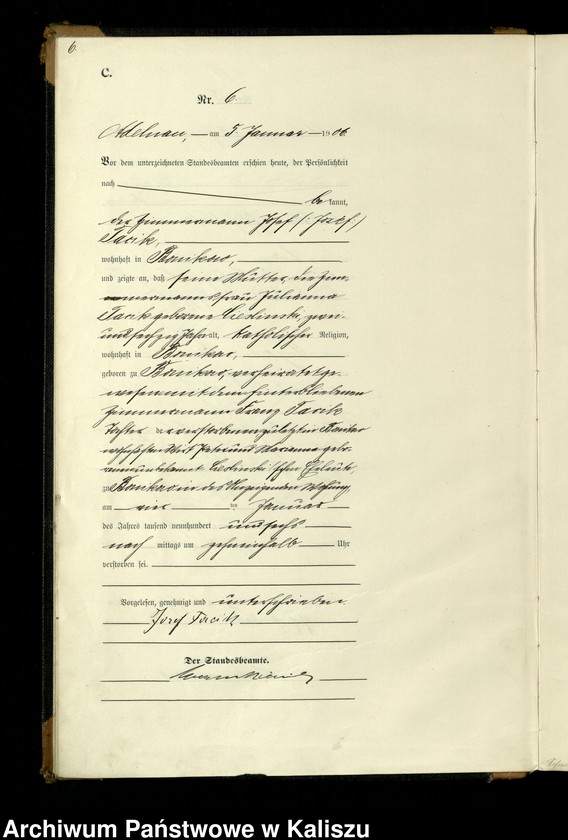 6.
C.
Nr. 6.
Adelnau, am 5 Januar 1906.
Vor dem unterzeichneten Standesbeamten erschien heute, der Persönlichkeit
nach
be kannt,
der Zimmermann Josef (: Józef :)
Tacik,
wohnhaft in Bonikow,
und zeigte an, daß seine Mutter, die Zim-
mermannsfrau Julianna
Tacik geborene Cieslinski, zwei
und sechzig Jahre alt, katholischer Religion,
wohnhaft in Bonikow,
geboren zu Bonikow, verheiratet ge-
wesen mit dem hinterbliebenen
Zimmermann Franz Tacik
Tochter der verstorbenen zuletzt in Bonikow
wohnhaften Wirt Peter und Marianna gebo-
renen unbekannt Cieslinski'schen Eheleute,
zu Bonikow in des Anzeigenden Wohnung
am vier ten Januar
des Jahres tausend neunhundert und sechs
nach mittags um zehneinhalb Uhr
verstorben sei.
Vorgelesen, genehmigt und unterschrieben
Jozef Tacik
Der Standesbeamte.
Archiwum Państwowe w Kaliszu